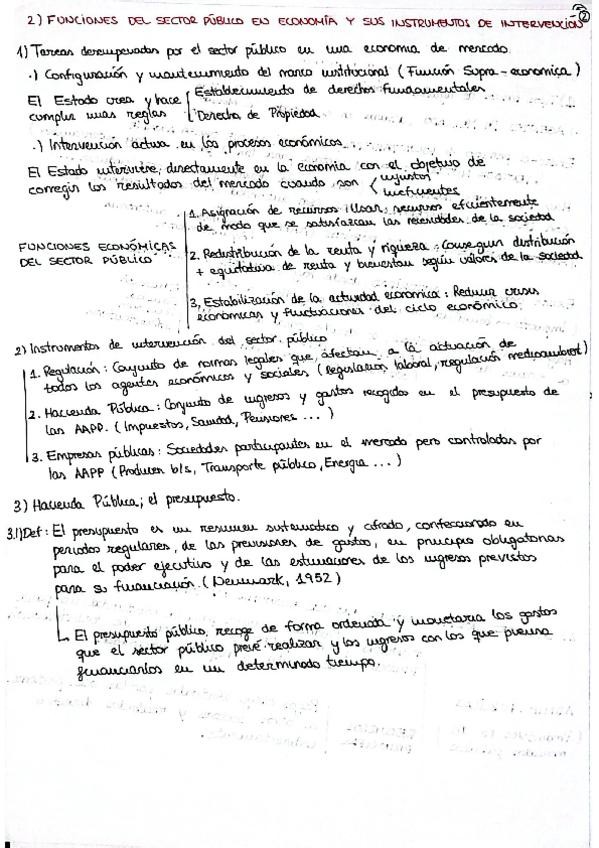 ②
2) FUNCIONES DEL SECTOR PÚBLICO EN ECONOMÍA Y SUS INSTRUMENTOS DE INTERVENCIÓN
1) Tareas desempeñadas por el sector público en una economía de mercado.
·) Configuración y mantenimiento del marco institucional (Función Supra-económica)
El Estado crea y hace cumplir unas reglas
Establecimiento de derechos fundamentales
Derecho de Propiedad
·) Intervención activa en los procesos económicos
El Estado interviene, directamente en la economía con el objetivo de
corregir los resultados del mercado cuando son
injustos
ineficientes
FUNCIONES ECONÓMICAS
DEL SECTOR PÚBLICO
1. Asignación de recursos: Usar recursos eficientemente
de modo que se satisfazcan las necesidades de la sociedad
2. Redistribución de la renta y riqueza: Conseguir distribución
+ equitativa de renta y bienestar según valores de la sociedad
3. Estabilización de la actividad económica: Reducir crisis
económicas y fluctuaciones del ciclo económico
2) Instrumentos de intervención del sector público
1. Regulación: Conjunto de normas legales que afectan a la actuación de
todos los agentes económicos y sociales (Regulación laboral, regulación medioambient)
2. Hacienda Pública: Conjunto de ingresos y gastos recogidos en el presupuesto de
las AAPP. (Impuestos, Sanidad, Pensiones ...)
3. Empresas públicas: Sociedades participantes en el mercado pero controladas por
las AAPP (Producen b/s, Transporte público, Energía ...)
3) Hacienda Pública; el presupuesto.
3.1) Def: El presupuesto es un resumen sistemático y cifrado, confeccionado en
periodos regulares, de las previsiones de gastos, en principio obligatorias
para el poder ejecutivo y de las estimaciones de los ingresos previstos
para su financiación. (Neumark, 1952)
El presupuesto público, recoge de forma ordenada y monetaria los gastos
que el sector público prevé realizar y los ingresos con los que piensa
financiarlos en un determinado tiempo.